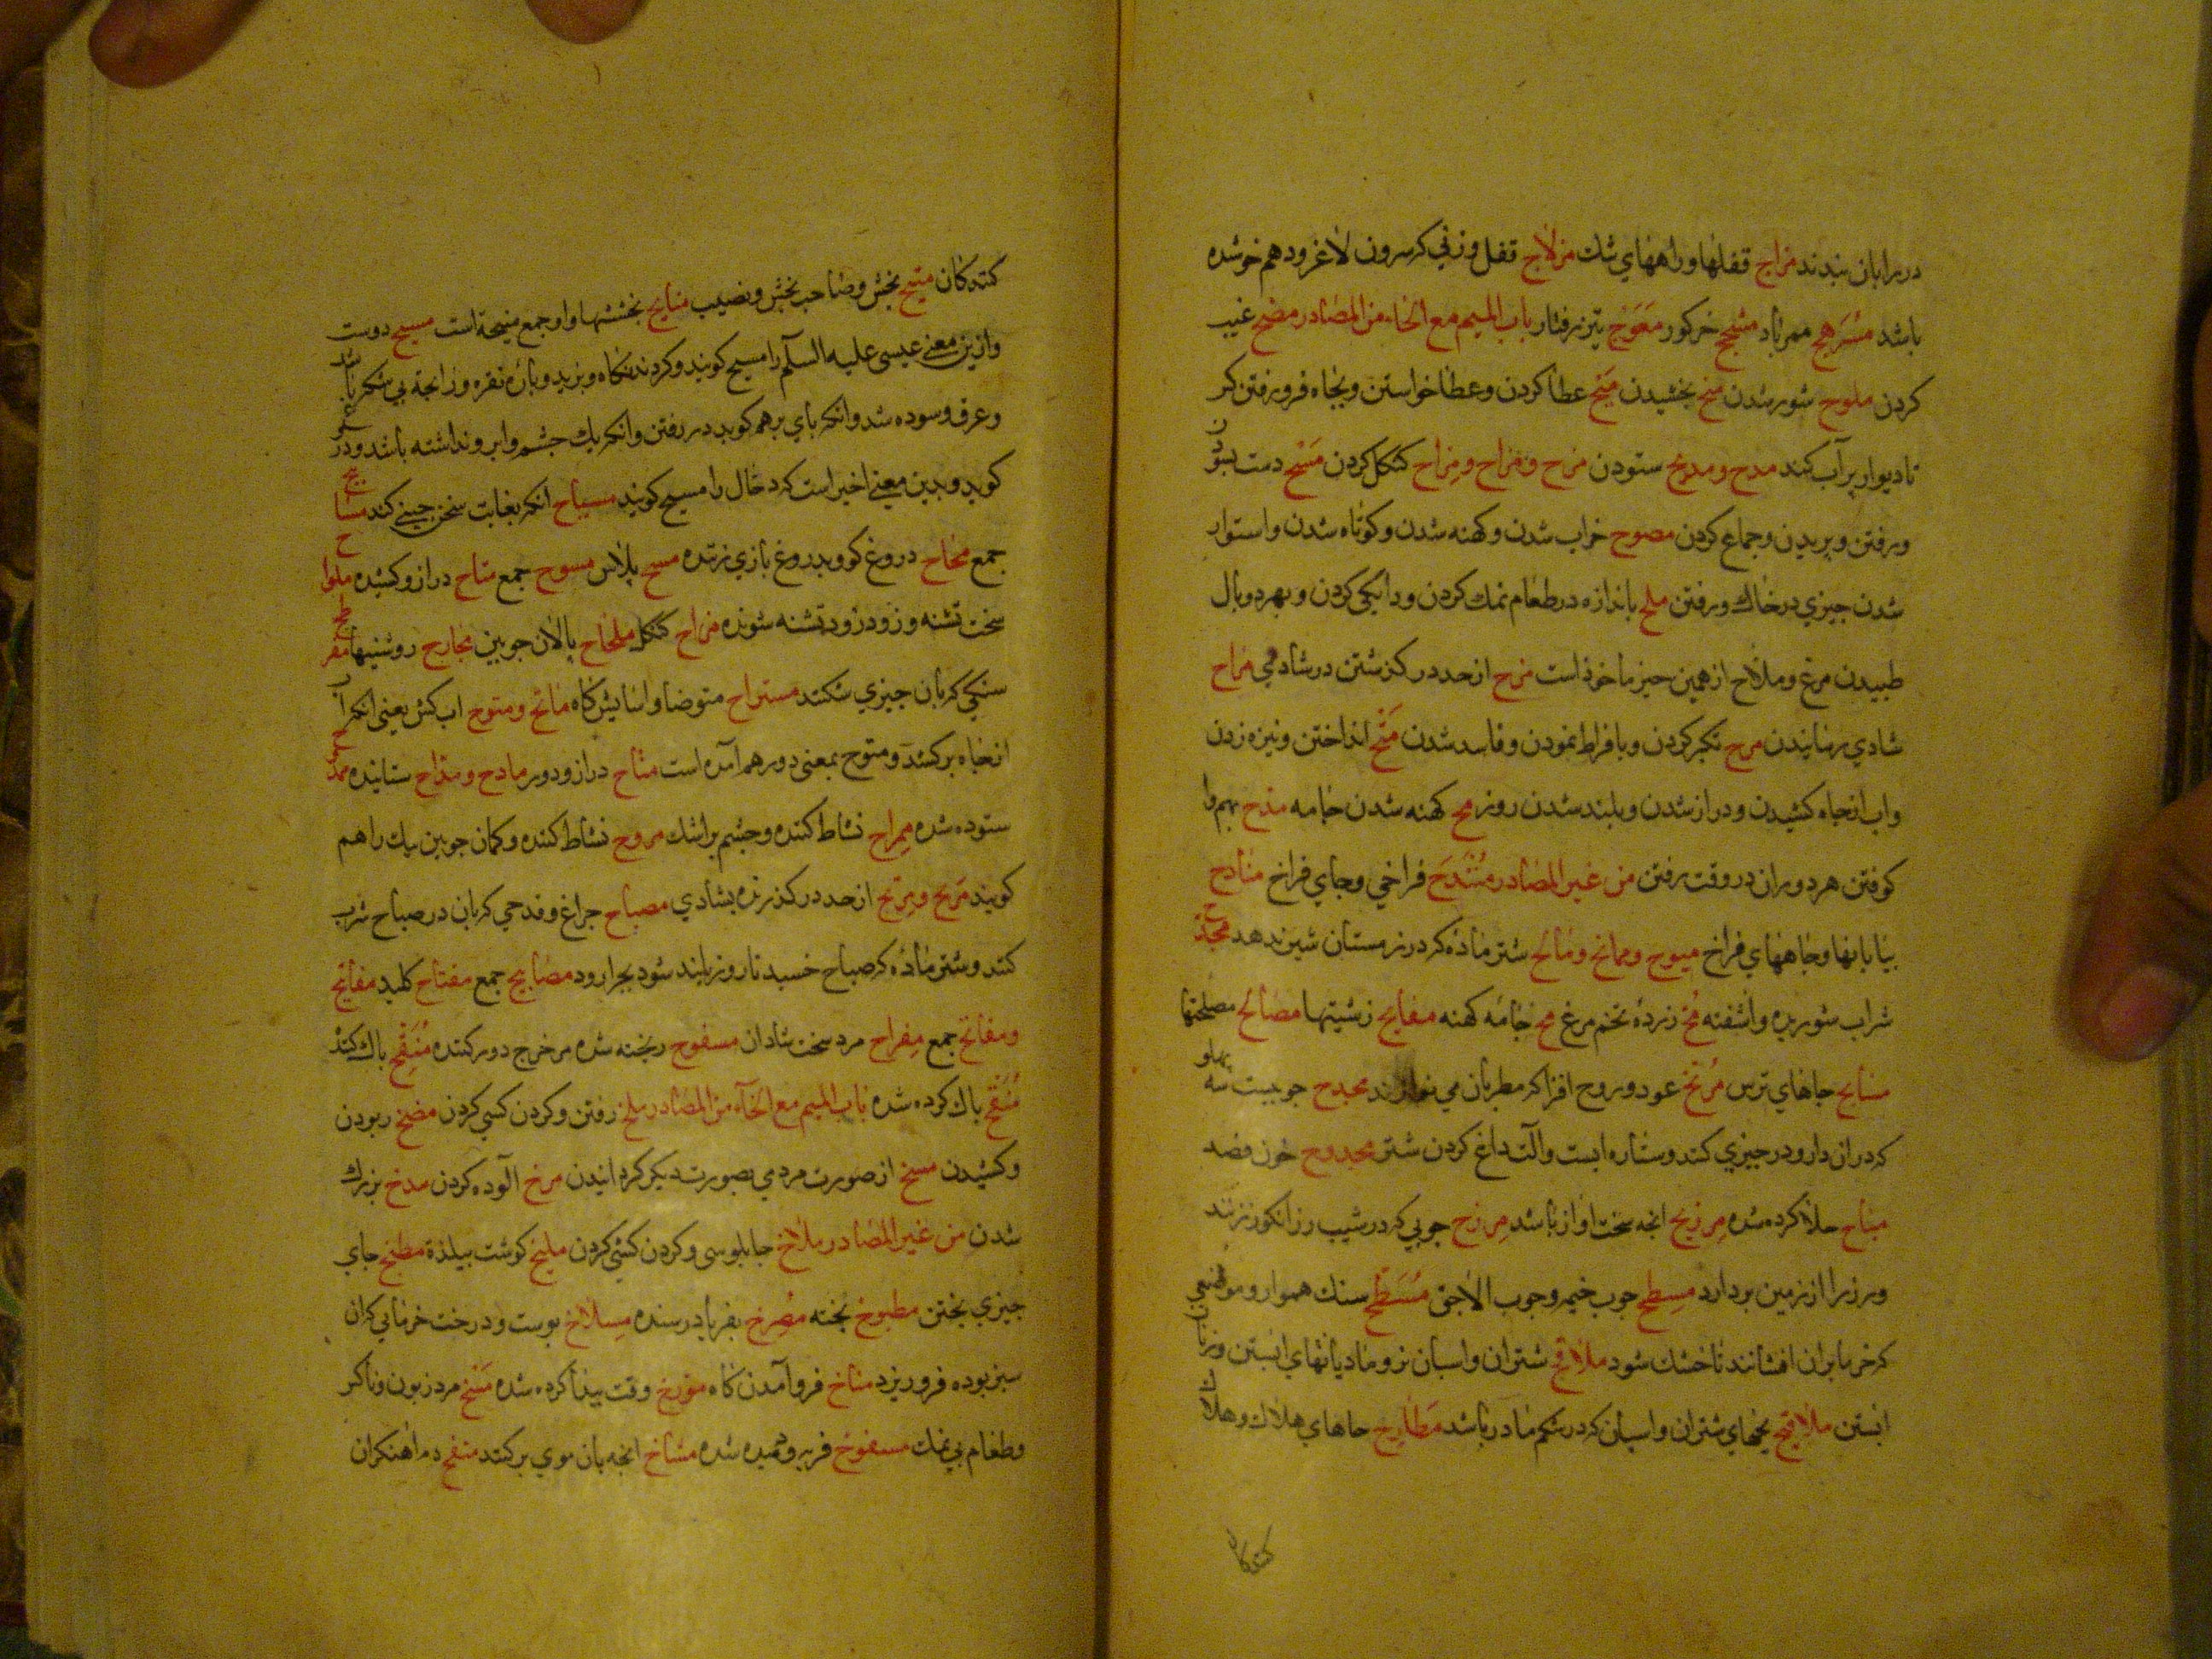 در برابان بندند مزاج قفلها و راههای تنك مزلاج قفل و زنی که سرون لاغر و دهم خوشده
باشد مسرهج ممرباد مشجج خرکور معوج تیز رفتار باب المیم مع الحاء من المصادر مضح غیب
کردن ملوح شور شدن منح بخشیدن میح عطا کردن و عطا خواستن و بجاه فرو رفتن کر
تا دیوار پر آب کند مدح و مدیح ستودن مزح و مزاح و مزاح کنکل کردن مسح دست بسودن
و رفتن و بریدن و جماع کردن مصوح خراب شدن و کهنه شدن و کوتاه شدن و استوار
شدن جیزی در خاك و رفتن ملح باندازه در طعام نمك کردن و دایکی کردن و بهر دو بال
طبیدن مرغ و ملاح از همین حیز ماخوذ است مرح از حد در کزشتن در شادمی مراح
شادی رهنایندن مرح تکبر کردن و با فراط نمودن و فاسد شدن متح انداختن و نیزه زدن
و اب از جاه کشیدن و دراز شدن و بلند شدن روز مح کهنه شدن جامه مذح بهم وا
کوفتن هر دو ران در وقت رفتن من غیر المصادر منتدح فراخی و جای فراخ منادح
بیابانها و جاههای فراخ میوح و ممانح و مانح شتر ماده که در زمستان شیر ندهد مجدح
شراب شوریده و اشفته مح زرده تخم مرغ مح جامه کهنه مقابح زشتیها مصالح مصلحتها
مسابح جاهای ترس مرنح عود و روح افزا که مطربان می نوازند مجدح جوبیست سه پهلو
که در ان دارو در جیزی کنند و ستاره ایست و آلت داغ کردن شتر مجدوح خون فصد
مباح حلال کرده شده مریح انجه سخت اواز باشد مرزح جوبی که در شیب رز انکور زنند
و رز را از زمین بردارد مسطح جوب خیمه و جوب الاجق مسطح سنك هموار و موضعی
که خرما بران افشانند تا خشك شود ملاقح شتران و اسبان نر و مادیانهای ابستن و زنان
ابستن ملاقیح بجهای شتران و اسبان که در شکم مادر باشد مطاوح جاهای هلاك و هلاك
کنندکان
کنندکان منیح بخش و صاحب بخش و نصیب منایح بخششها و او جمع منیحة است مسیح دوست
و ازین معنی عیسی علیه السلم را مسیح کویند و کردنده کاه و بزید و باره نقره و زانجه بی سکه باشد
و عرف و سوده شد و انکه بای بر هم کوبد در رفتن و انکه یك جشم و ابرو نداشته باشد و دروغ
کوید و بدین معنی اخیر است که دجال را مسیح کویند مسیاح انکه بغایت سخن جینی کند مسابیح
جمع محاح دروغ کو و بدروغ بازی زننده مسح بلاس مسوح جمع متاح دراز و کشیده ملواح
سخت تشنه و زود زود تشنه شونده مزاح کنکل ملحاح بالان جوبین مجارح روشنیها مقرطح
سنکی که بان جیزی شکنند مستراح متوضا و اسایش کاه ماتح و متوح اب کش یعنی انکه آب
از جاه بر کشد و متوح بمعنی دور هم آمده است متاح دراز و دور مادح و مداح ستاینده ممدوح
ستوده شده ممراح نشاط کننده و جشم بر اشك مروح نشاط کننده و کمان جوبین یك را هم
کویند مریح و مریح از حد در کذرنده بشادی مصباح جراغ و قدحی که بان در صباح شراب
کنند و شتر ماده که صباح خسبد تا روز بلند شود بجرا رود مصابیح جمع مفتاح کلید مفاتح
و مفاتح جمع مفراح مرد سخت شادان مسفوح ریخته شده مزحزح دور کننده منقح باك کننده
منقح باك کرده شده باب المیم مع الخآء من المصادر ملخ رفتن و کردن کسی کردن مضخ ربودن
و کشیدن مسخ از صورت مردمی بصورت دیکر کردانیدن مرخ آلوده کردن مدخ بزرك
شدن من غیر المصادر ملاخ جابلوسی و کردن کشی کردن ملیخ کوشت بیلذة مطبخ جای
جیزی بختن مطبوخ بخته مصرخ بفریاد رسنده مسلاخ بوست و درخت خرمایی که ان
سبز بوده فرو ریزد مناخ فرو آمدن کاه مورخ وقت بیدا کرده شده مسخ مرد زبون و ناکس
و طعام بی نمك مسفوخ فربه و دمیده شده مشاخ انجه بان موی بر کنند منفخ دم اهنکران